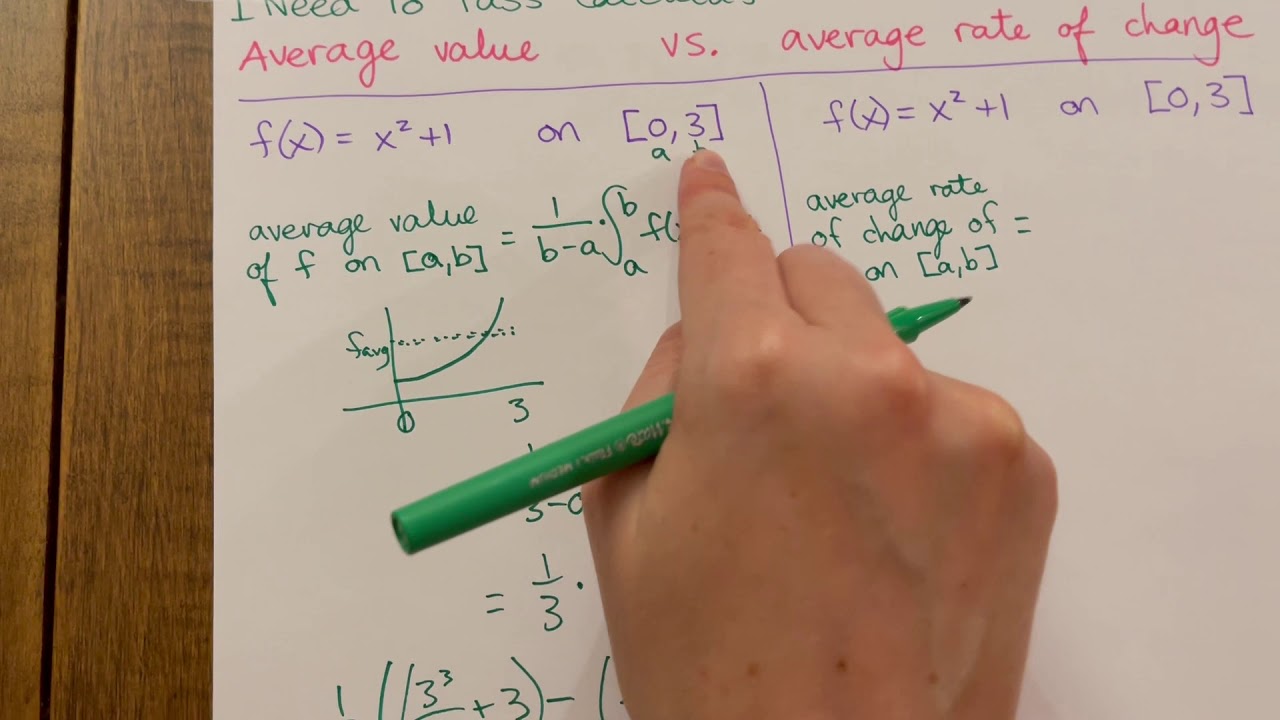 I Need to Pass Calculus
Average value vs. average rate of change
f(x) = x² + 1 on [0, 3]
a b
average value
of f on [a,b] = 1/(b-a) · ∫ₐᵇ f(
favg
0 3
3-0
= 1/3 ·
((3³ + 3) - (
f(x) = x² + 1 on [0, 3]
average rate
of change of =
on [a,b]
MEDIUM